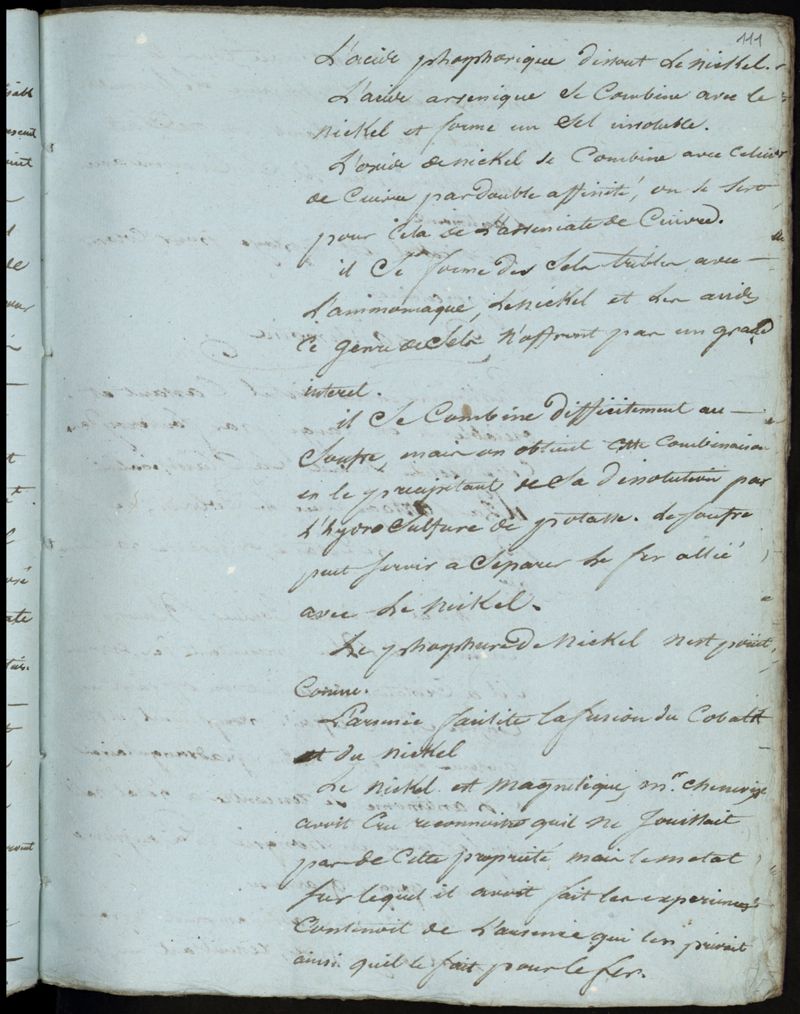 111
L'acide phosphorique dissout Le nickel.
L'acide arsenique Se Combine avec le
nickel et forme un Sel insoluble.
L'oxide de nickel se Combine avec Celui
de Cuivre par double affinité, on se sert
pour Cela de L'arseniate de Cuivre.
il Se forme des Sels triples avec
L'ammoniaque, Le nickel et Les acides
Ce genre de Sels N'offrent pas un grand
interet.
il Se Combine Difficilement au
Soufre, mais on obtient cette Combinaison
en le precipitant de Sa Dissolution par
L'hydro Sulfure de potasse. Le soufre
peut servir a Separer Le fer allié
avec Le Nickel.
Le phosphure De Nickel n'est point
Connu.
L'arsenic facilite la fusion du Cobalt
et du nickel
Le nickel est magnetique, mr. chenevix
avoit Cru reconnoitre quil ne Jouissait
pas de Cette propriété mais le metal
sur lequel il avoit fait les experiences
Contenoit de L'arsenic qui l'en privait
ainsi quil le fait pour le fer.